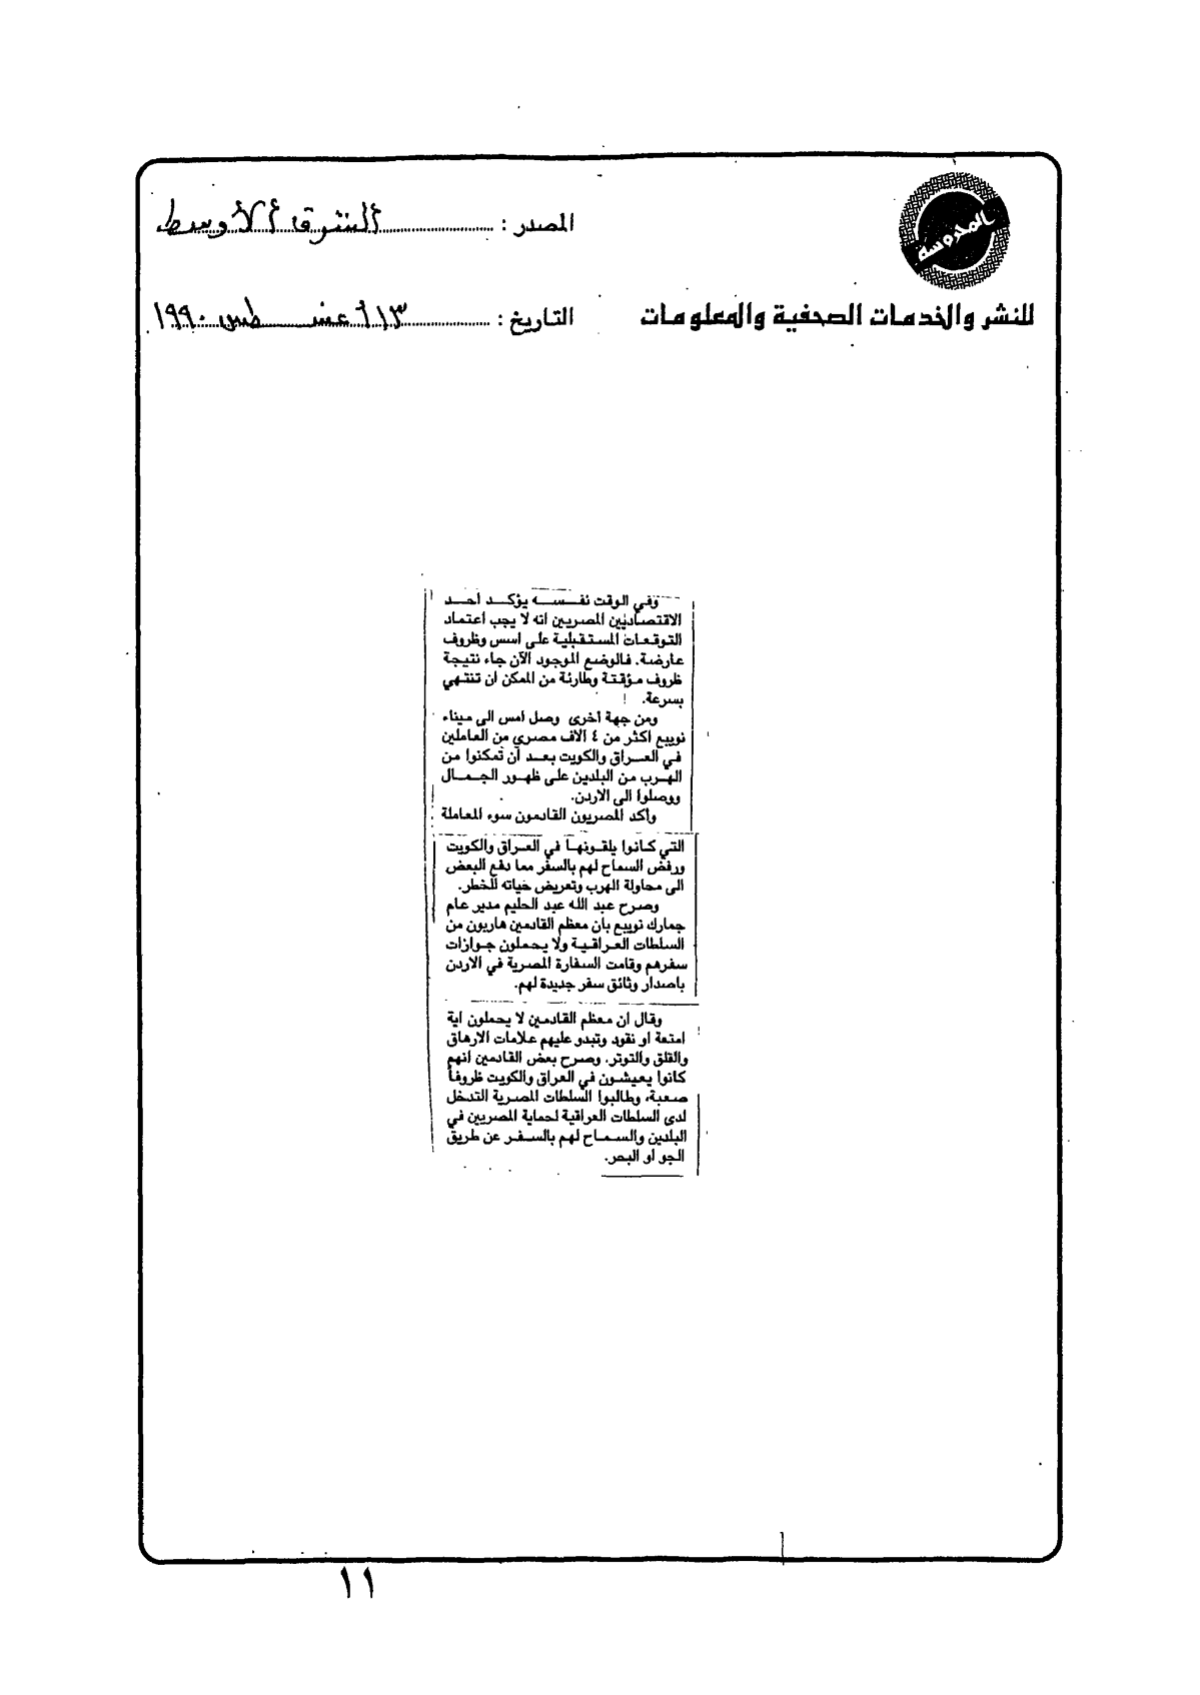 المحروسة
للنشر والخدمات الصحفية والمعلومات
المصدر : الشرق الأوسط
التاريخ : ١٣ أغسطس ١٩٩٠
وفي الوقت نفسه يؤكد احد
الاقتصاديين المصريين انه لا يجب اعتماد
التوقعات المستقبلية على اسس وظروف
عارضة. فالوضع الموجود الآن جاء نتيجة
ظروف مؤقتة وطارئة من الممكن ان تنتهي
بسرعة.
ومن جهة أخرى وصل امس الى ميناء
نويبع اكثر من ٤ الاف مصري من العاملين
في العراق والكويت بعد أن تمكنوا من
الهرب من البلدين على ظهور الجمال
ووصلوا الى الاردن.
وأكد المصريون القادمون سوء المعاملة
التي كانوا يلقونها في العراق والكويت
ورفض السماح لهم بالسفر مما دفع البعض
الى محاولة الهرب وتعريض حياته للخطر.
وصرح عبد الله عبد الحليم مدير عام
جمارك نويبع بأن معظم القادمين هاربون من
السلطات العراقية ولا يحملون جوازات
سفرهم وقامت السفارة المصرية في الاردن
باصدار وثائق سفر جديدة لهم.
وقال ان معظم القادمين لا يحملون اية
امتعة او نقود وتبدو عليهم علامات الارهاق
والقلق والتوتر. وصرح بعض القادمين انهم
كانوا يعيشون في العراق والكويت ظروفاً
صعبة، وطالبوا السلطات المصرية التدخل
لدى السلطات العراقية لحماية المصريين في
البلدين والسماح لهم بالسفر عن طريق
الجو او البحر.
١١